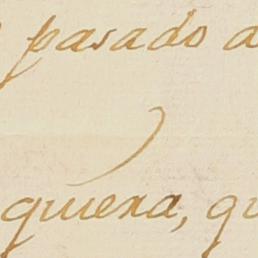 pasado a
quiera, qu